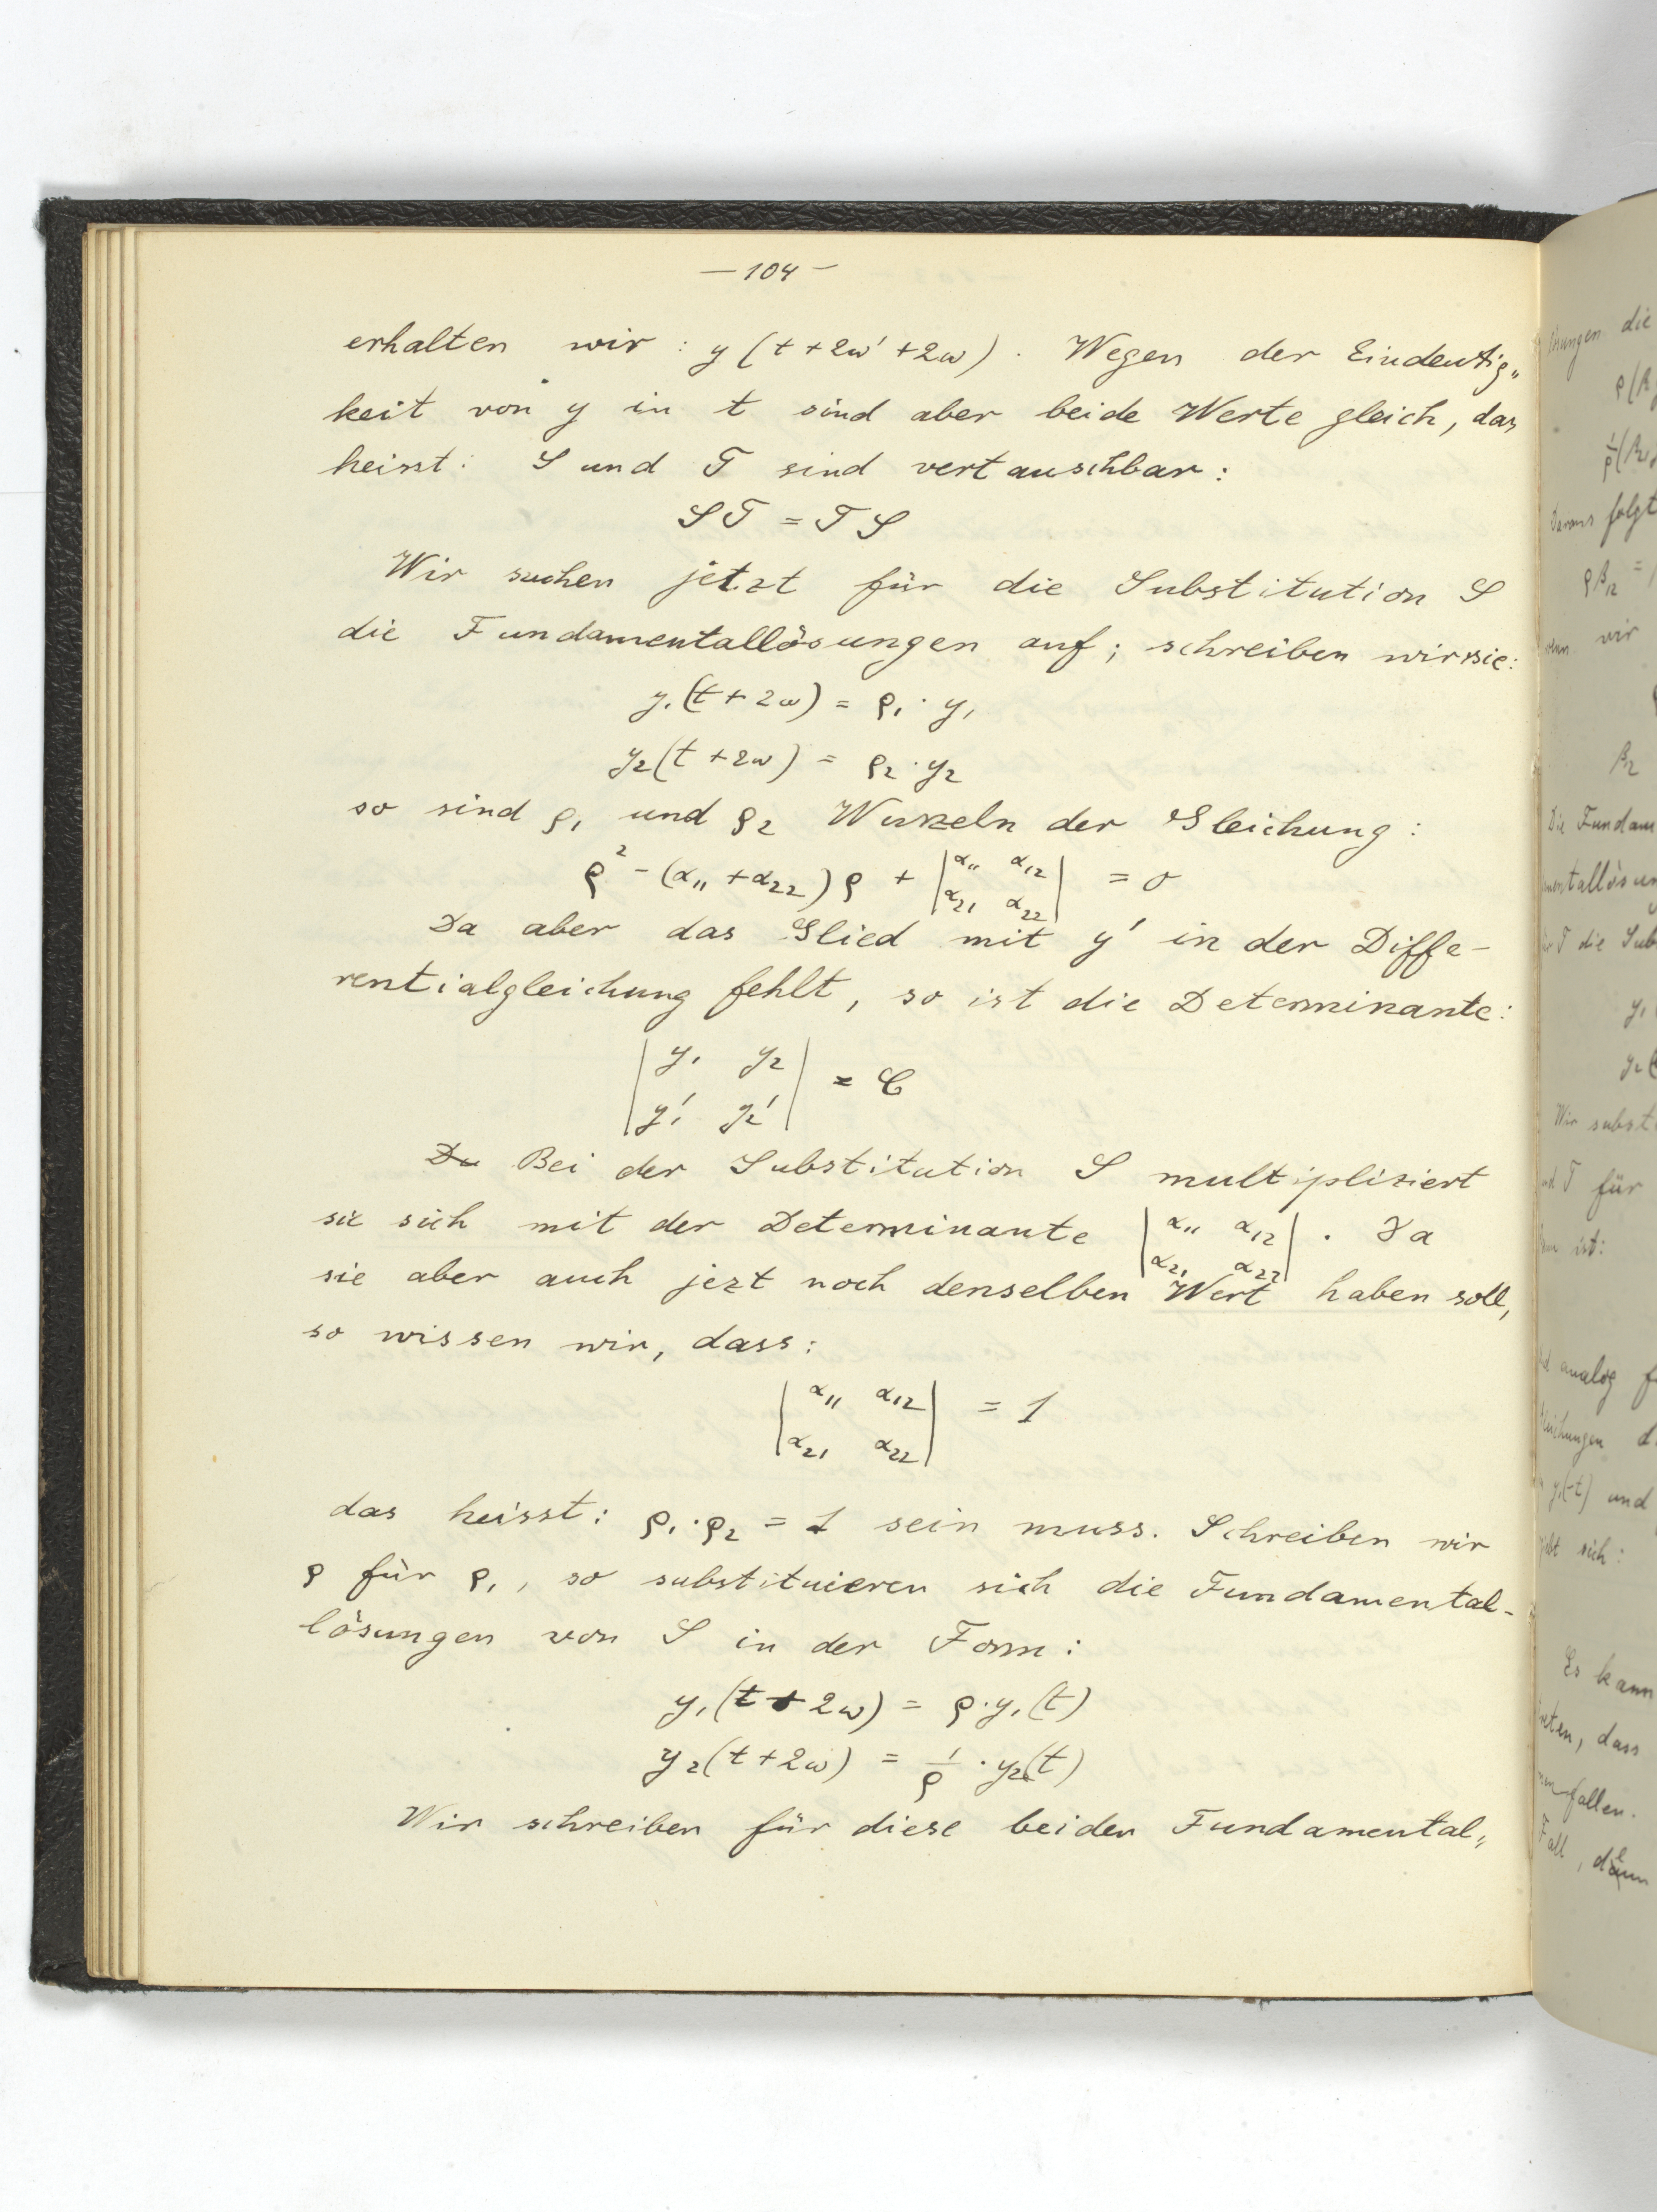 — 104 —
erhalten wir : y (t + 2ω' + 2ω) . Wegen der Eindeutig„
keit von y in t sind aber beide Werte gleich, das
heisst: S und T sind vertauschbar:
S T = T S
Wir suchen jetzt für die Substitution S
die Fundamentallösungen auf; schreiben wir sie:
y₁(t + 2ω) = ρ₁ · y₁
y₂(t + 2ω) = ρ₂ · y₂
so sind ρ₁ und ρ₂ Wurzeln der Gleichung :
ρ² - (α₁₁ + α₂₂) ρ + | α₁₁ α₁₂ | = 0
| α₂₁ α₂₂ |
Da aber das Glied mit y' in der Diffe-
rentialgleichung fehlt, so ist die Determinante:
| y₁ y₂ | = C
| y₁' y₂' |
Da Bei der Substitution S multipliziert
sie sich mit der Determinante | α₁₁ α₁₂ | . Da
| α₂₁ α₂₂ |
sie aber auch jezt noch denselben Wert haben soll,
so wissen wir, dass:
| α₁₁ α₁₂ | = 1
| α₂₁ α₂₂ |
das heisst: ρ₁ · ρ₂ = 1 sein muss. Schreiben wir
ρ für ρ₁, so substituieren sich die Fundamental-
lösungen von S in der Form :
y₁(t + 2ω) = ρ · y₁(t)
y₂(t + 2ω) = 1/ρ · y₂(t)
Wir schreiben für diese beiden Fundamental„
die
ρ(β
folgt
ρβ₁₂ =
wir
β₁₂
Die Fundam
T die Sub
y₁
y₂(
Wir subst
T für
ist:
analog f
d
y₁(-t) und
sich :
Es kann
, dass
fallen.
Fall, denn